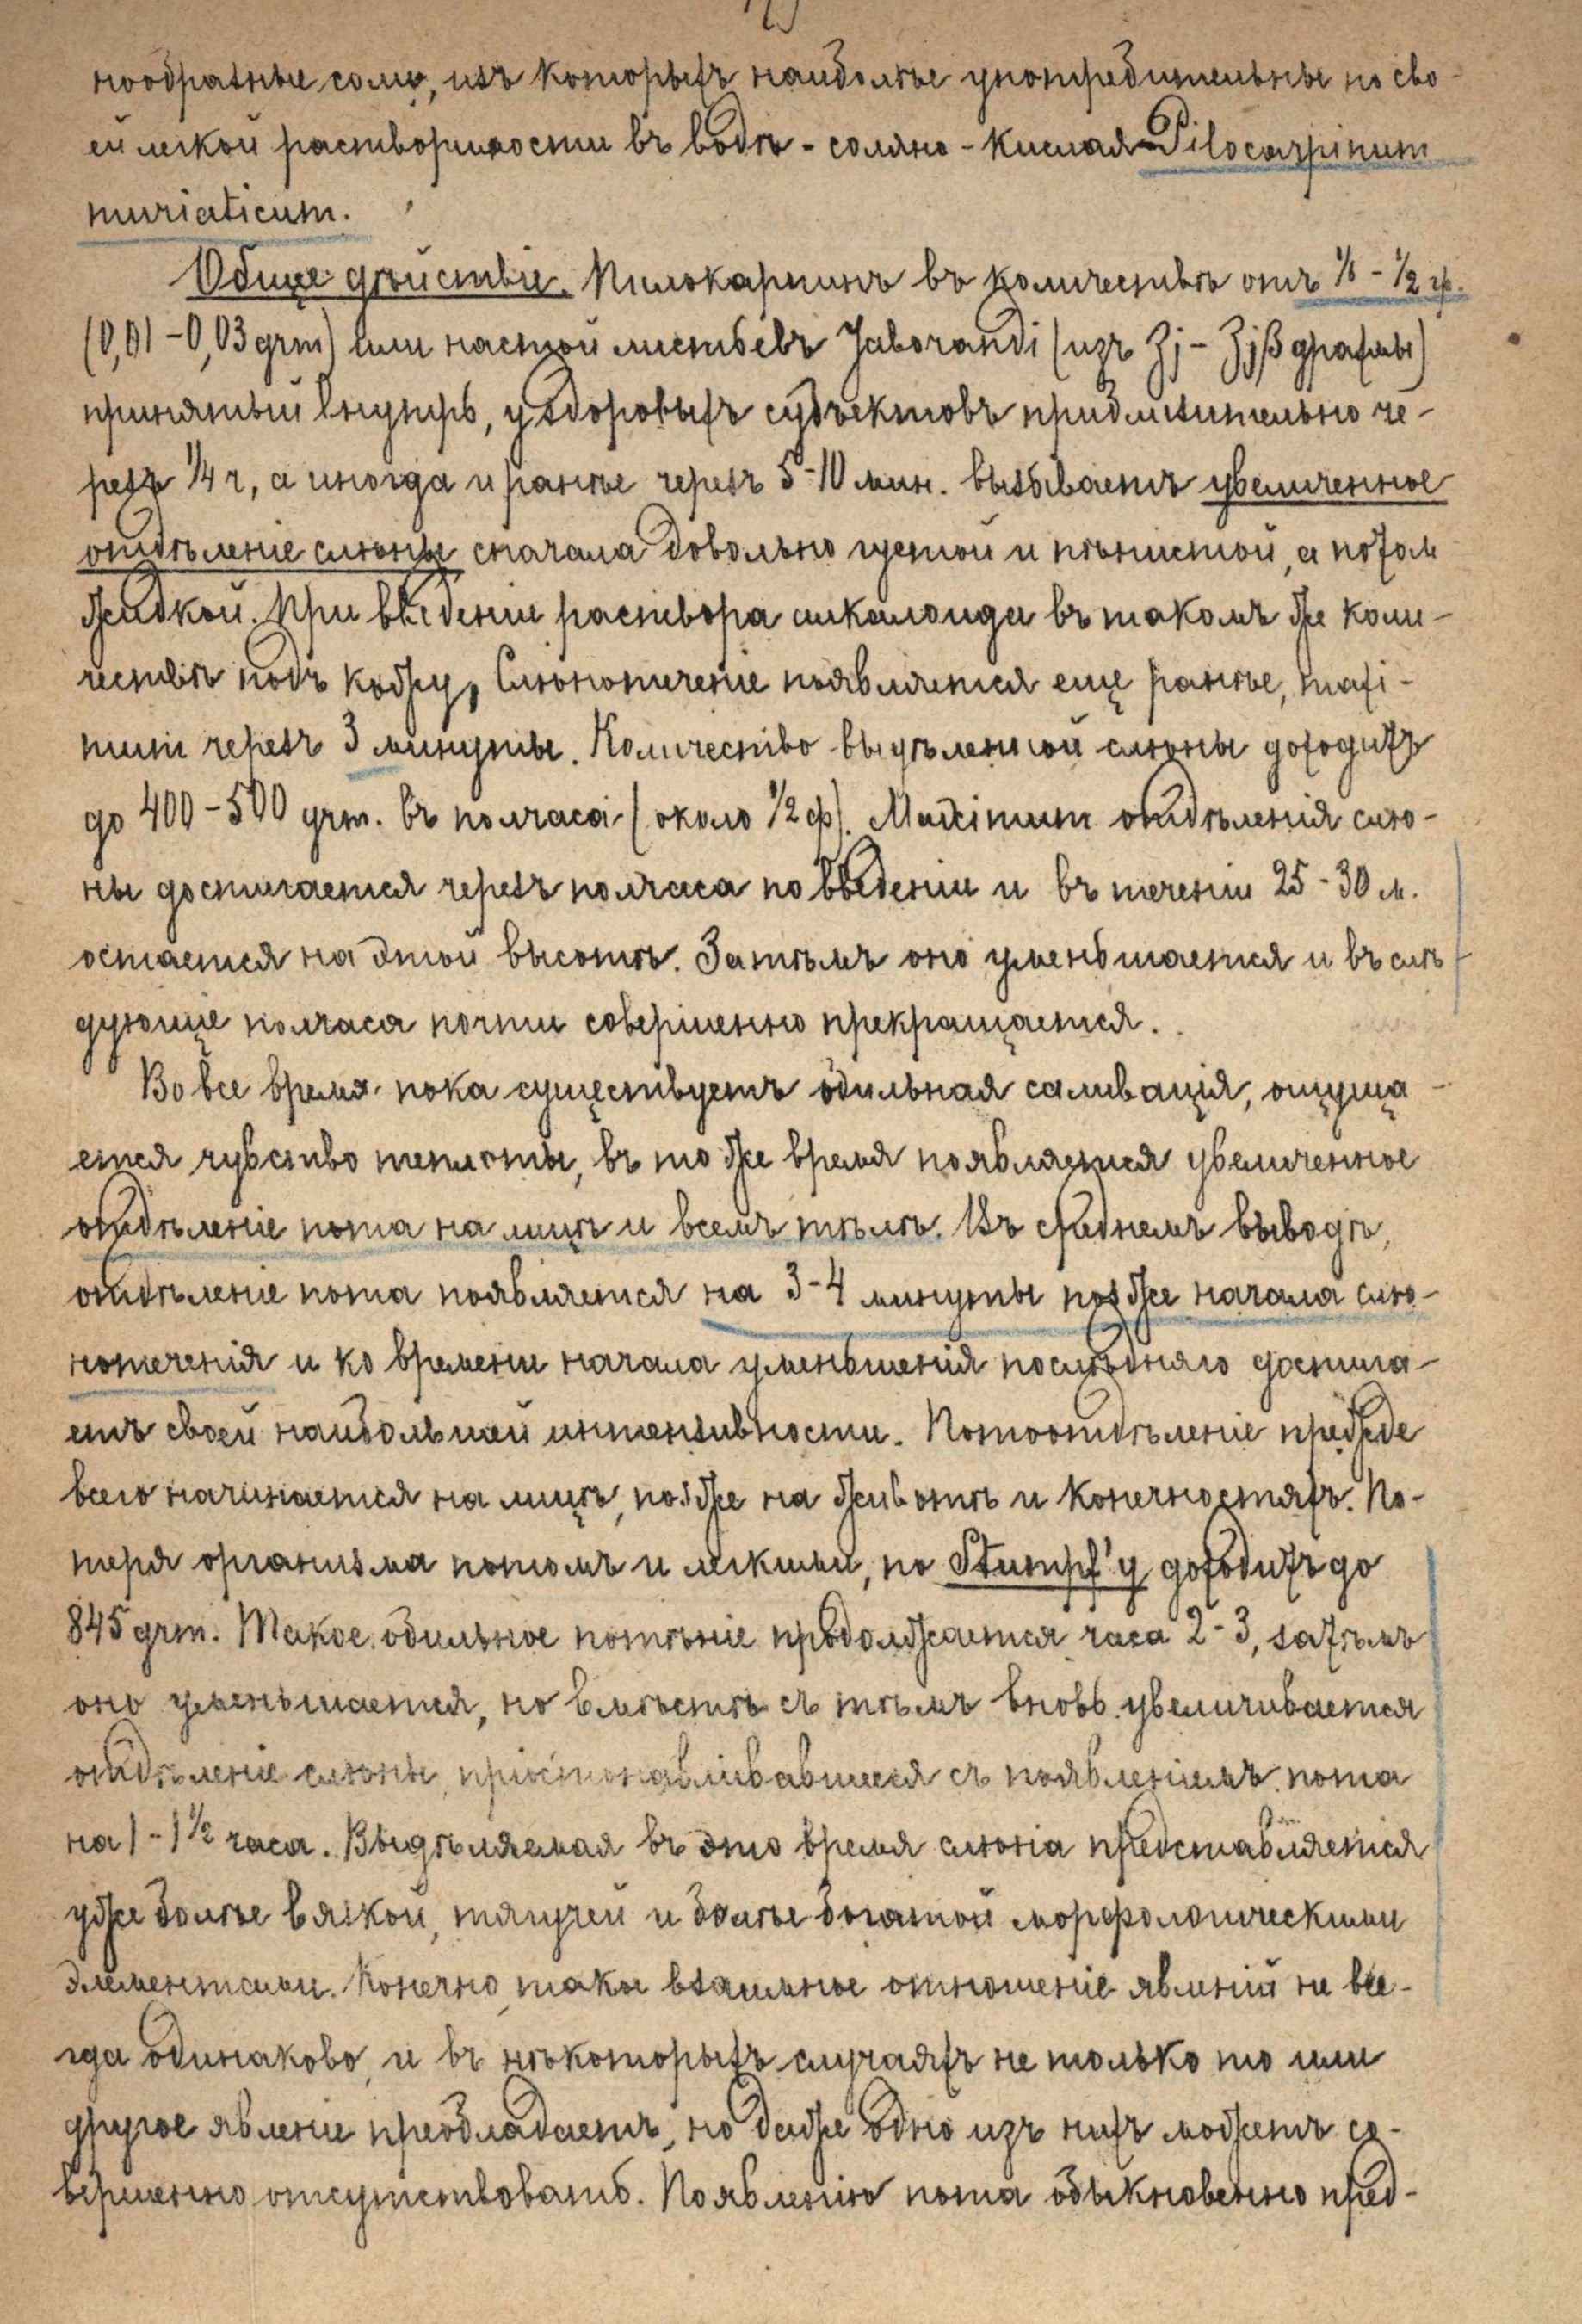 нообразные соли, изъ которыхъ наиболѣе употребительны по сво-
ей легкой растворимости въ водѣ - соляно-кислая - Pilocarpinum
muriaticum.
Общее дѣйствіе. Пилокарпинъ въ количествѣ отъ 1/6 - 1/2 гр.
(0,01 - 0,03 grm) или настой листьевъ Jaborandi (изъ ʒj - ʒjβ драхмы)
принятый внутрь, у здоровыхъ субъектовъ приблизительно че-
резъ 1/4 ч, а иногда и ранѣе черезъ 5-10 мин. вызываетъ увеличенное
отдѣленіе слюны сначала довольно густой и пѣнистой, а потом
жидкой. При введеніи раствора алкалоида въ такомъ же коли-
чествѣ подъ кожу, слюнотеченіе появляется еще ранѣе, maxi-
mum черезъ 3 минуты. Количество выдѣленной слюны доходитъ
до 400-500 grm. въ полчаса (около 1/2 ф). Maximum отдѣленія слю-
ны достигается черезъ полчаса по введеніи и въ теченіи 25-30 м.
остается на этой высотѣ. Затѣмъ оно уменьшается и въ слѣ
дующіе полчаса почти совершенно прекращается.
Во все время пока существуетъ обильная саливація, ощуща-
ется чувство теплоты, въ то же время появляется увеличенное
отдѣленіе пота на лицѣ и всемъ тѣлѣ. Въ среднемъ выводѣ,
отдѣленіе пота появляется на 3-4 минуты позже начала слю-
нотеченія и ко времени начала уменьшенія послѣдняго достига-
етъ своей наибольшей интензивности. Потоотдѣленіе прежде
всего начинается на лицѣ, позже на животѣ и конечностяхъ. По-
теря организма потомъ и легкими, по Stumpf'у доходитъ до
845 grm. Такое обильное потѣніе продолжается часа 2-3, затѣмъ
оно уменьшается, но вмѣстѣ съ тѣмъ вновь увеличивается
отдѣленіе слюны, пріостонавливавшееся съ появленіемъ пота
на 1-1 1/2 часа. Выдѣляемая въ это время слюна представляется
уже болѣе вязкой, тягучей и болѣе богатой морфологическими
элементами. Конечно, такое взаимное отношеніе явленій не все-
гда одинаково, и въ нѣкоторыхъ случаяхъ не только то или
другое явленіе преобладаетъ, но даже одно изъ нихъ можетъ со-
вершенно отсутствовать. Появленію пота обыкновенно пред-